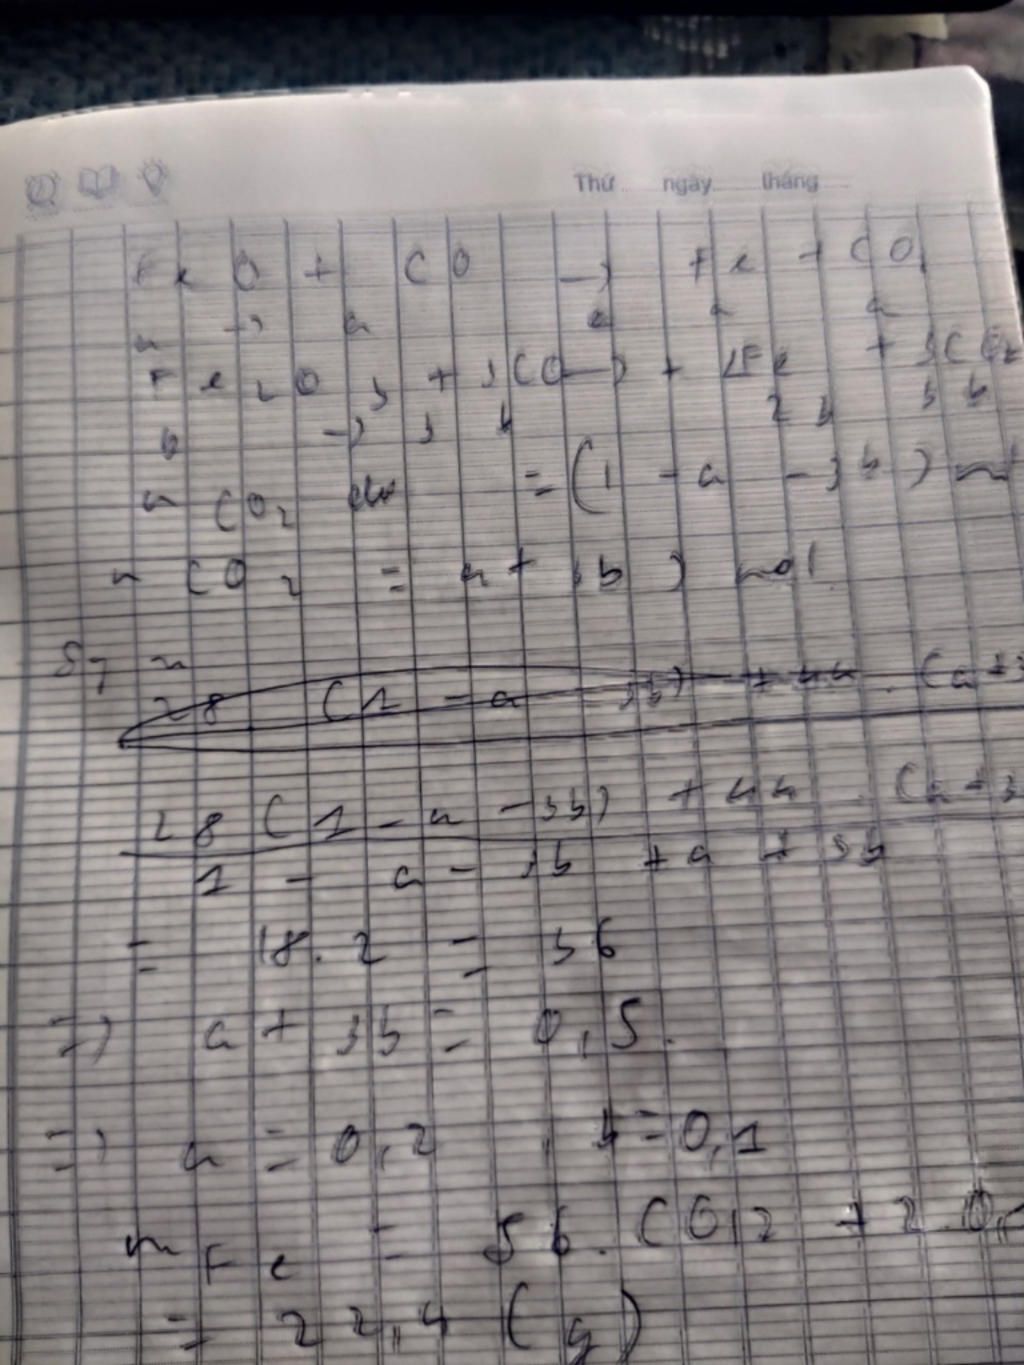 Thứ ngày tháng
FeO + CO -> Fe + CO
a -> a a a
Fe2O3 + 3CO -> + 2Fe + 3CO2
b -> 3b 2b 3b
n CO2 dư = (1 - a - 3b) mol
n CO2 = a + 3b) mol
28 (1 - a - 3b) + 44 . (a + 3
28 (1 - a - 3b) + 44 . (a + 3
1 - a - 3b + a + 3b
= 18.2 = 36
=> a + 3b = 0,5.
=> a = 0,2 , b = 0,1
m Fe = 56. (0,2 + 2.0,
= 22,4 (g)